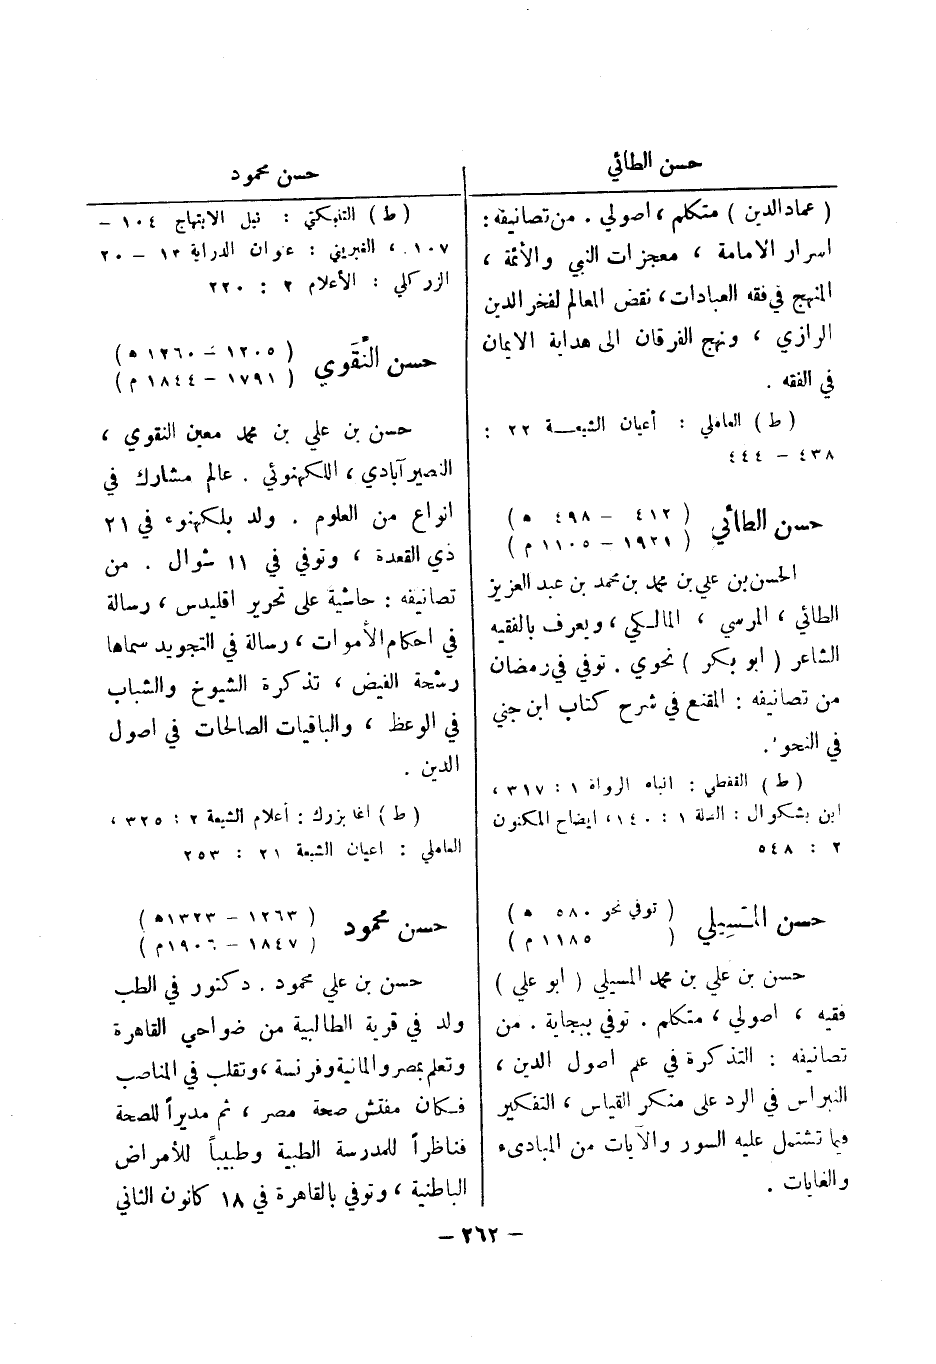 حسن الطائي
( عماد الدين ) متكلم ، اصولي . من تصانيفه :
اسرار الامامة ، معجزات النبي والأئمة ،
المنهج في فقه العبادات، نقض المعالم لفخر الدين
الرازي ، ونهج الفرقان الى هداية الايمان
في الفقه .
( ط ) العاملي : أعيان الشيعـــة ٢٢ :
٤٣٨ – ٤٤٤
حسن الطائي ( ٤١٢ – ٤٩٨ ه )
( ١٩٢١ – ١١٠٥ م )
الحسن بن علي بن محمد بن محمد بن عبد العزيز
الطائي ، المرسي ، المالكي ، ويعرف بالفقيه
الشاعر ( ابو بكر ) نحوي . توفي في رمضان
من تصانيفه : المقنع في شرح كتاب ابن جني
في النحو .
( ط ) القفطي : انباه الرواة ١ : ٣١٧ ،
ابن بشكوال : الصلة ١ : ١٤٠، ايضاح المكنون
٢ : ٥٤٨
حسن المَسِيلي ( توفي نحو ٥٨٠ ه )
( ١١٨٥ م )
حسن بن علي بن محمد المسيلي ( ابو علي )
فقيه ، اصولي ، متكلم . توفي ببجاية . من
تصانيفه : التذكرة في علم اصول الدين ،
النبراس في الرد على منكر القياس ، التفكير
فيما تشتمل عليه السور والآيات من المبادىء
والغايات .
حسن محمود
( ط ) التنبكتي : نيل الابتهاج ١٠٤ –
١٠٧ ، الغبريني : عنوان الدراية ١٣ – ٢٠
الزركلي : الأعلام ٢ : ٢٢٠
حسن النَّقَوي ( ١٢٠٥ – ١٢٦٠ ه )
( ١٧٩١ – ١٨٤٤ م )
حسن بن علي بن محمد معين النقوي ،
النصيرآبادي ، اللكهنوئي . عالم مشارك في
انواع من العلوم . ولد بلكهنوء في ٢١
ذي القعدة ، وتوفي في ١١ شوال . من
تصانيفه : حاشية على تحرير اقليدس ، رسالة
في احكام الأموات ، رسالة في التجويد سماها
رشحة الفيض ، تذكرة الشيوخ والشباب
في الوعظ ، والباقيات الصالحات في اصول
الدين .
( ط ) اغا بزرك : أعلام الشيعة ٢ : ٣٢٥ ،
العاملي : اعيان الشيعة ٢١ : ٢٥٣
حسن محمود ( ١٢٦٣ – ١٣٢٣ه )
( ١٨٤٧ – ١٩٠٦م )
حسن بن علي محمود . دكتور في الطب
ولد في قرية الطالبية من ضواحي القاهرة
وتعلم بمصر والمانية وفرنسة ، وتقلب في المناصب
فكان مفتش صحة مصر ، ثم مديراً للصحة
فناظراً للمدرسة الطبية وطبيباً للأمراض
الباطنية ، وتوفي بالقاهرة في ١٨ كانون الثاني
– ٢٦٢ –